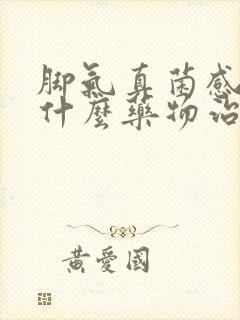 脚氣真菌感
什麼藥物治
黃愛國